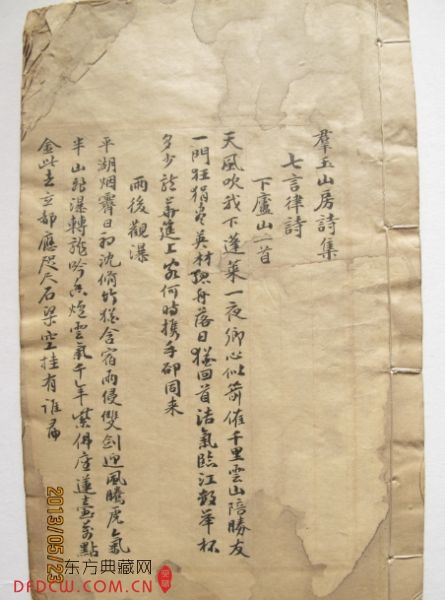 羣玉山房詩集
七言律詩
下廬山首
天風吹我下蓬萊一夜鄉心似箭催千里雲山陪勝友
一門狂狷英材舟落日猶回首浩氣臨江數舉杯
多少龍華進上客何時携手却同来
雨後觀瀑
平湖烟霽日初沉脩竹猶含宿雨侵雙劍迎風騰虎氣
半山飛瀑轉龍吟香爐雲氣千年紫佛座蓮臺萬點
金此去京都應咫尺石梁空挂有誰尋
2013/05/23
东方典藏网
DFDCW.COM.CN